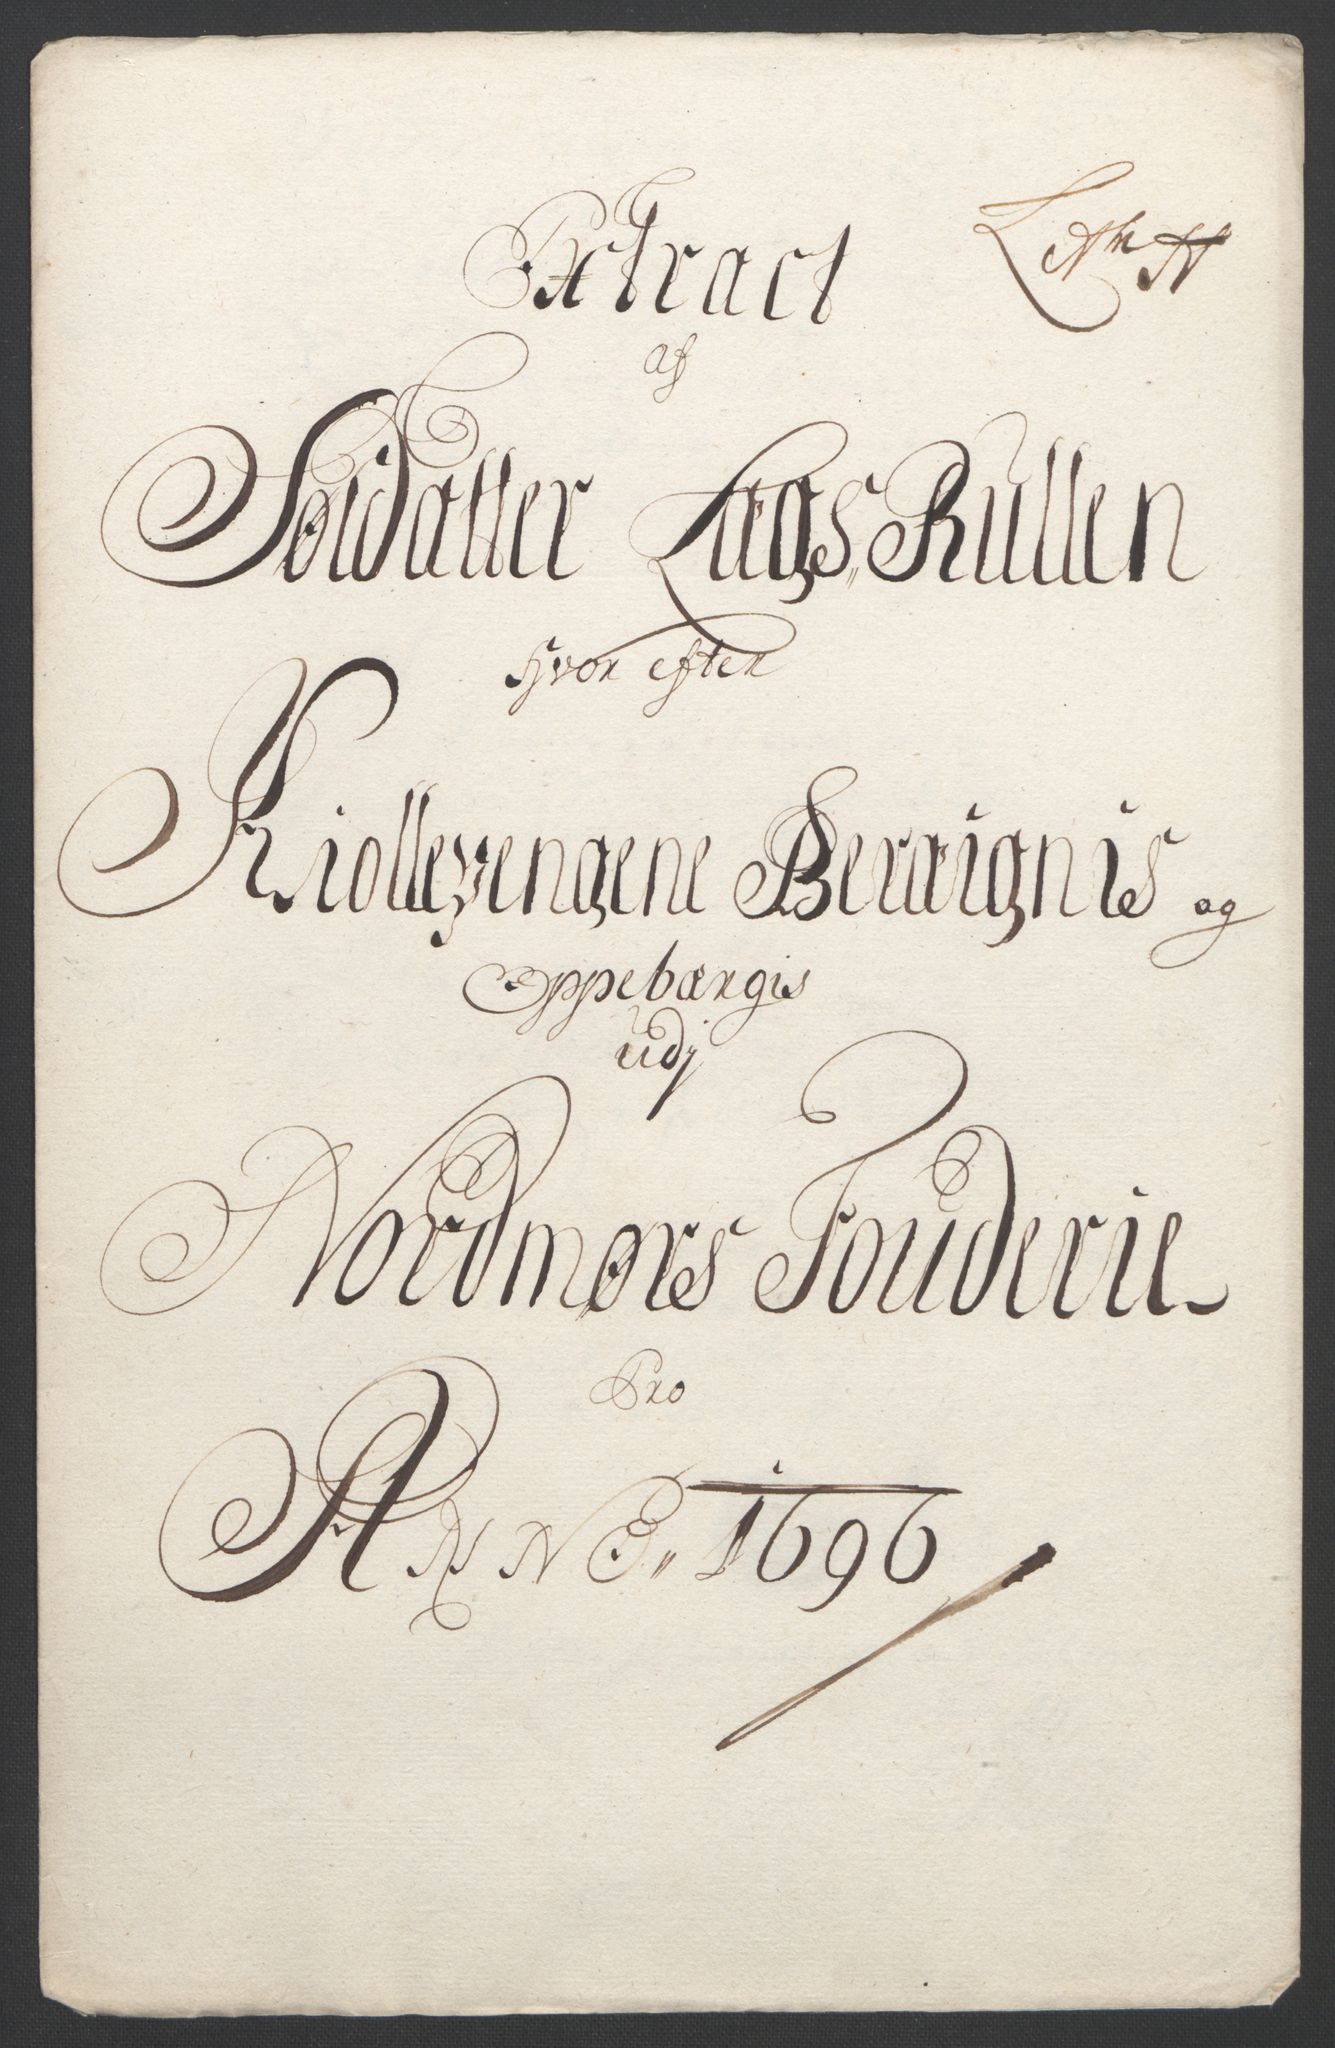 Extract
af
Soldatter Lægs„ Rullen
Hvor efter
Kiollepengene Beræignis og
Oppebærgis
udj
Nordmørs Fouderie
Pro
ANNO„ 1696